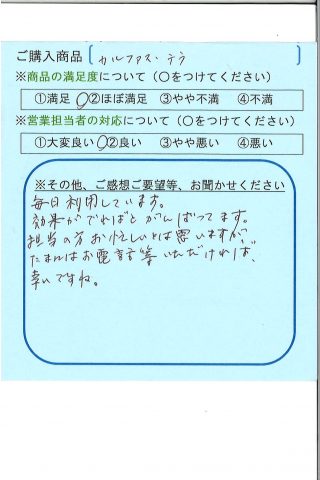 ご購入商品 カルファス・テラ
※商品の満足度について（○をつけてください）
①満足 ②ほぼ満足 ③やや不満 ④不満
※営業担当者の対応について（○をつけてください）
①大変良い ②良い ③やや悪い ④悪い
※その他、ご感想ご要望等、お聞かせください
毎日利用しています。
効果がでればとがんばってます。
担当の方お忙しいとは思いますが、
たまにはお電話等いただければ、
幸いですね。